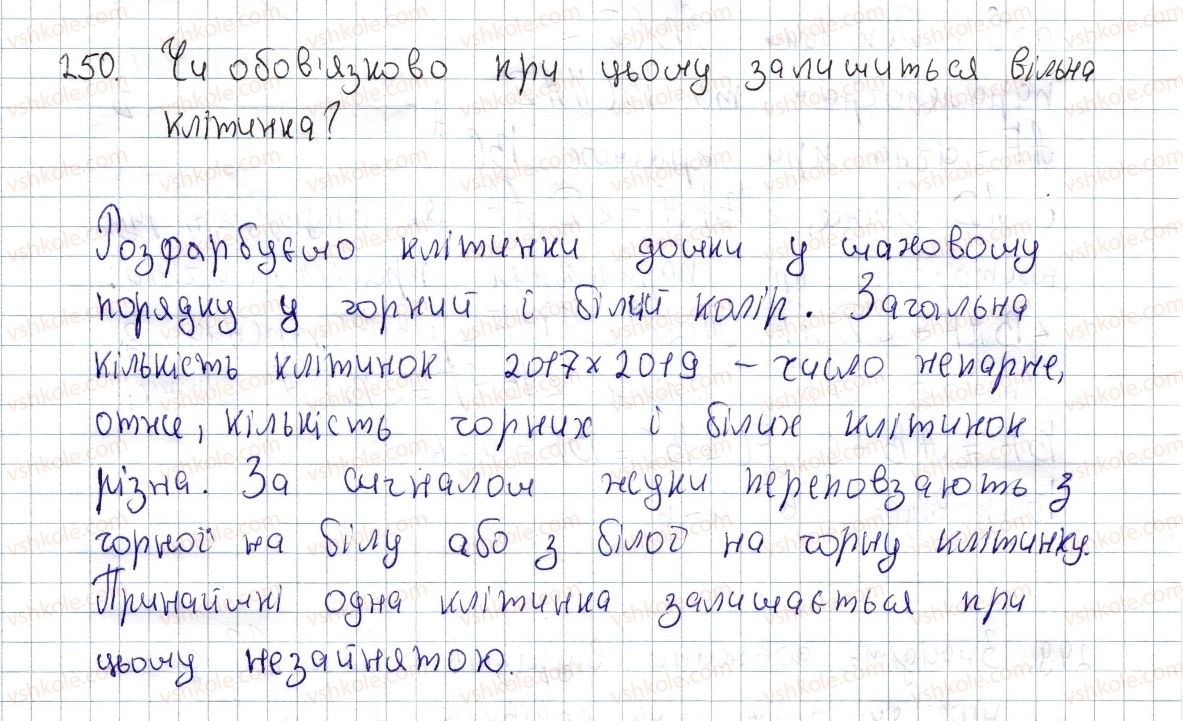 250. Чи обов'язково при цьому залишиться вільна
клітинка?
Розфарбуємо клітинки дошки у шаховому
порядку у чорний і білий колір. Загальна
кількість клітинок 2017×2019 – число непарне,
отже, кількість чорних і білих клітинок
різна. За сигналом жуки переповзають з
чорної на білу або з білої на чорну клітинку.
Принаймні одна клітинка залишається при
цьому незайнятою.